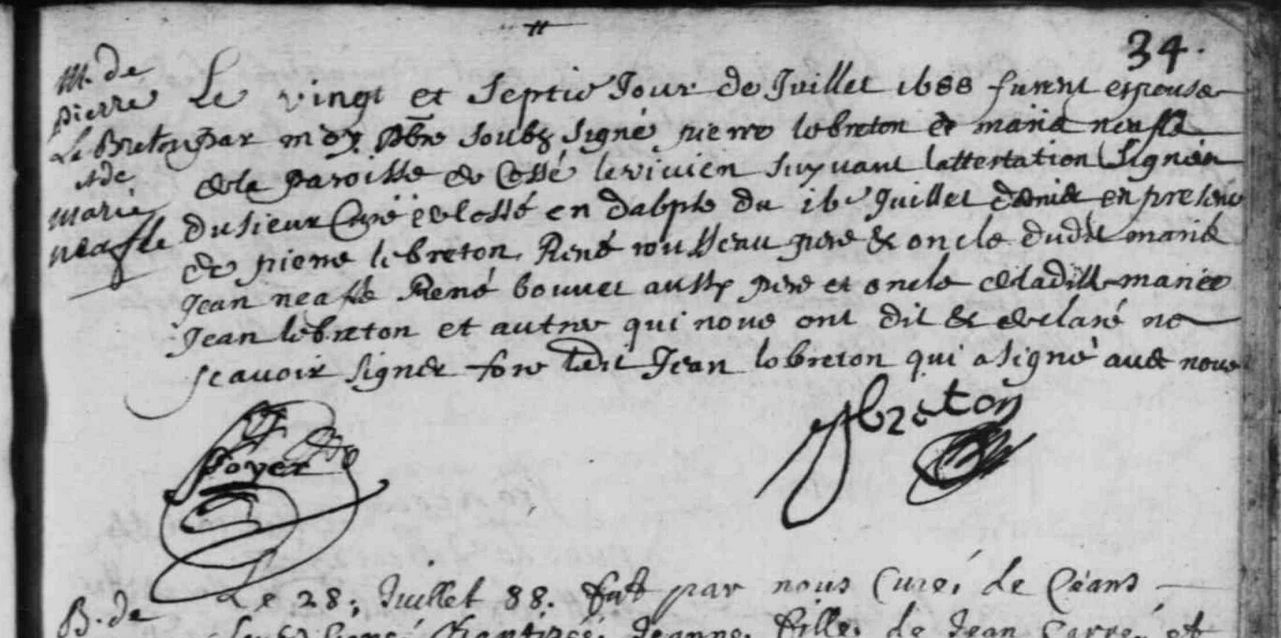 34.
M. de
pierre
Le Breton
et de
marie
neafle
Le vingt et septie Jour de Juillet 1688 furent espouse
par moy pbre soubz signé pierre lebreton et marie neafle
de la paroisse de Cossé le vivien suyvant lattestation signée
du sieur Curé de Cossé en dabpte du 16e Juillet dernier en presence
de pierre lebreton René rousseau pere & oncle dudit marié
Jean neafle René bouvet aussy pere et oncle de ladille mariee
Jean lebreton et autre qui nous ont dit & declaré ne
scavoir signer fore ledit Jean lebreton qui a signé avec nous
Foyer
J breton
B. de
Le 28. Juillet 88. fut par nous Curé de Céans
Jeanne fille de Jean et